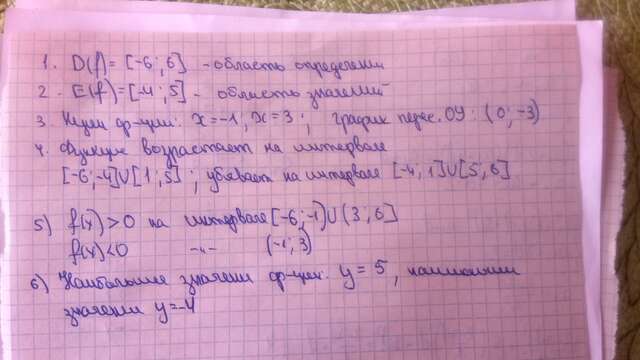 1. D(f)= [-6; 6] - область определения
2. E(f)=[-4; 5] - область значений
3. Нули ф-ции: x=-1, x=3; график перес. OY: (0; -3)
4. Функция возрастает на интервале
[-6; -4]U[1; 5]; убывает на интервале [-4; 1]U[5; 6]
5) f(x)>0 на интервале [-6; -1)U(3; 6]
f(x)<0 -"- (-1; 3)
6) Наибольшее значени ф-ции: y=5, наименьшее
значени y=-4